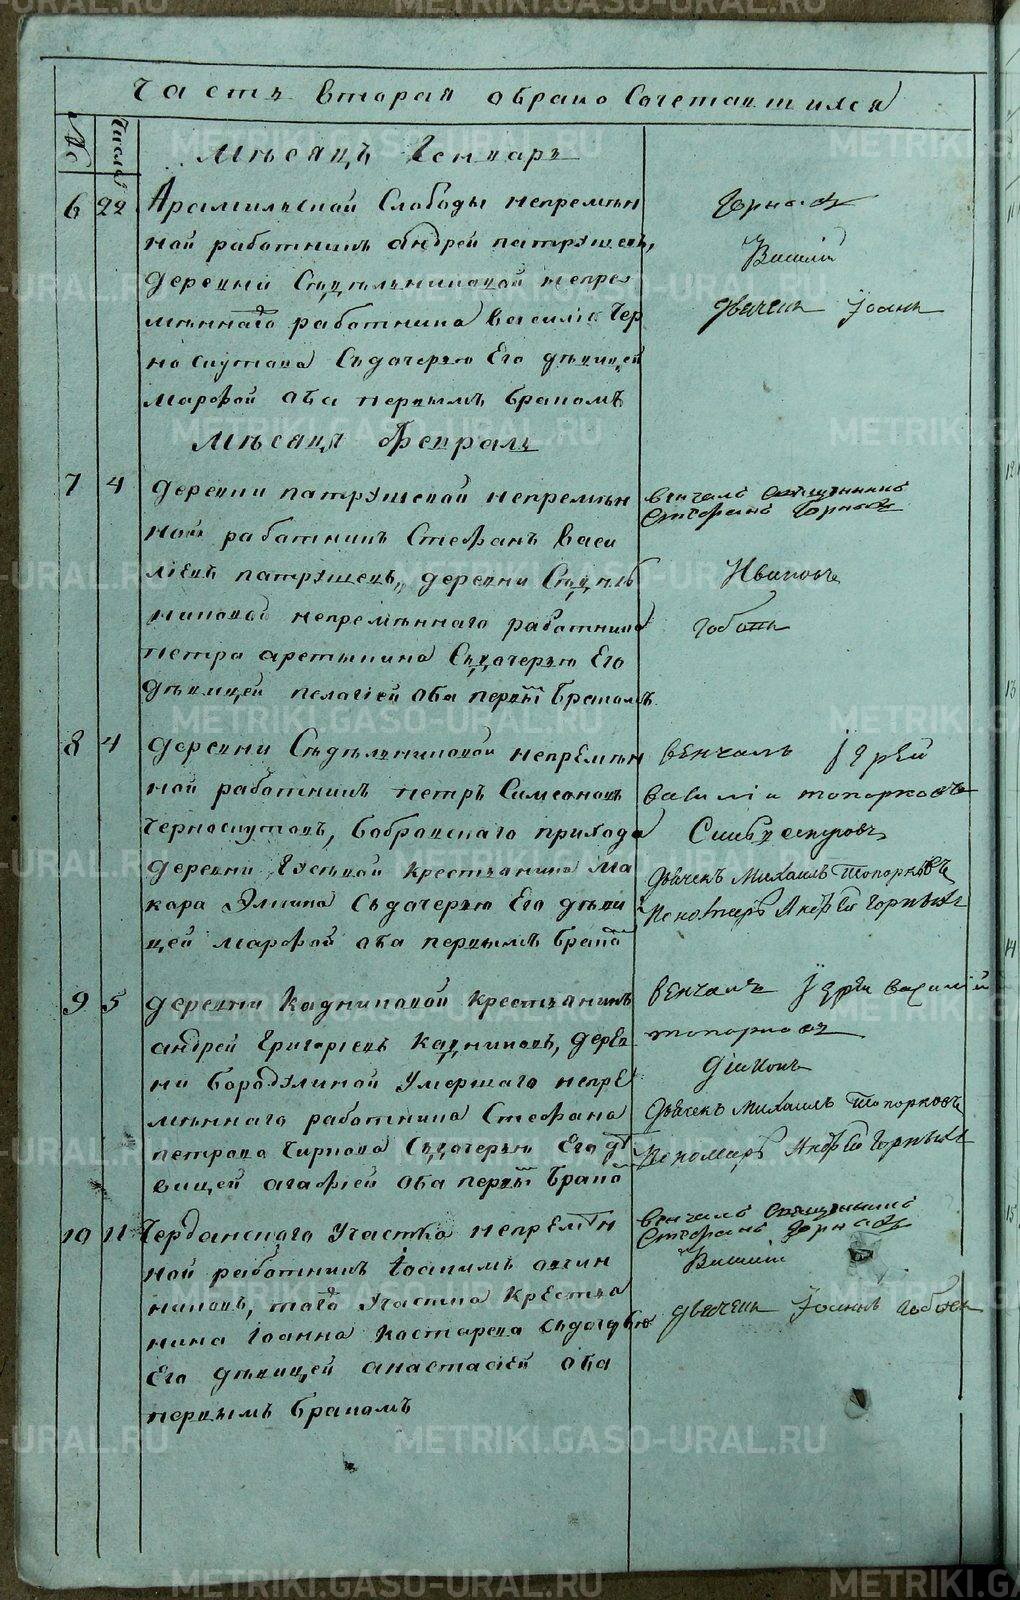 Часть вторая о брако Сочетавшихся
№ Числа
Мѣсяцъ Генварь
6 22 Арамильской Слободы непремѣн
ной работникъ андрей патрушевъ,
деревни Сѣдѣльниковой непре
мѣннаго работника василія Чер
носкутова Съдочерью Его дѣвицей
марѳой оба первымъ бракомъ
Горныхъ
Василій
дьячекъ Іоаннъ
Мѣсяцъ Февраль
7 4 деревни патрушевой непремѣн
ной работникъ Стефанъ васи
ліевъ патрушевъ, деревни Сѣдѣль
никовой непремѣннаго работника
петра аретькина Съдочерью Его
дѣвицей пелагіей оба первымъ бракомъ
вѣнчалъ священникъ
Стефанъ Горныхъ
8 4 деревни Сѣдѣльниковой непремѣн
ной работникъ петръ Симеоновъ
Черноскутовъ, бобровскаго прихода
деревни крестьянина ма
кара Съдочерью Его дѣви
цей марѳой оба первымъ брако
вѣнчалъ іерей
василій топорковъ
дьячекъ Михаилъ Топорковъ
Пономарь Андрей Горныхъ
9 5 деревни кадниковой крестьянинъ
андрей Григоріевъ кадниковъ, дерев
ни бородулиной умершаго непре
мѣннаго работника Стефана
петрова Чиркова Съдочерью Его дѣ
вицей агафіей оба первымъ брако
вѣнчалъ іерей василій
топорковъ
діаконъ
дьячекъ Михаилъ Топорковъ
Пономарь Андрей Горныхъ
10 11 Чердынскаго участка непремѣн
ной работникъ іоакимъ овчин
никовъ, того участка крестья
нина іоанна костарева съдочерью
Его дѣвицей анастасіей оба
первымъ бракомъ
вѣнчалъ священникъ
Стефанъ Горныхъ
Василій
дьячекъ Іоаннъ
METRIKI.GASO-URAL.RU